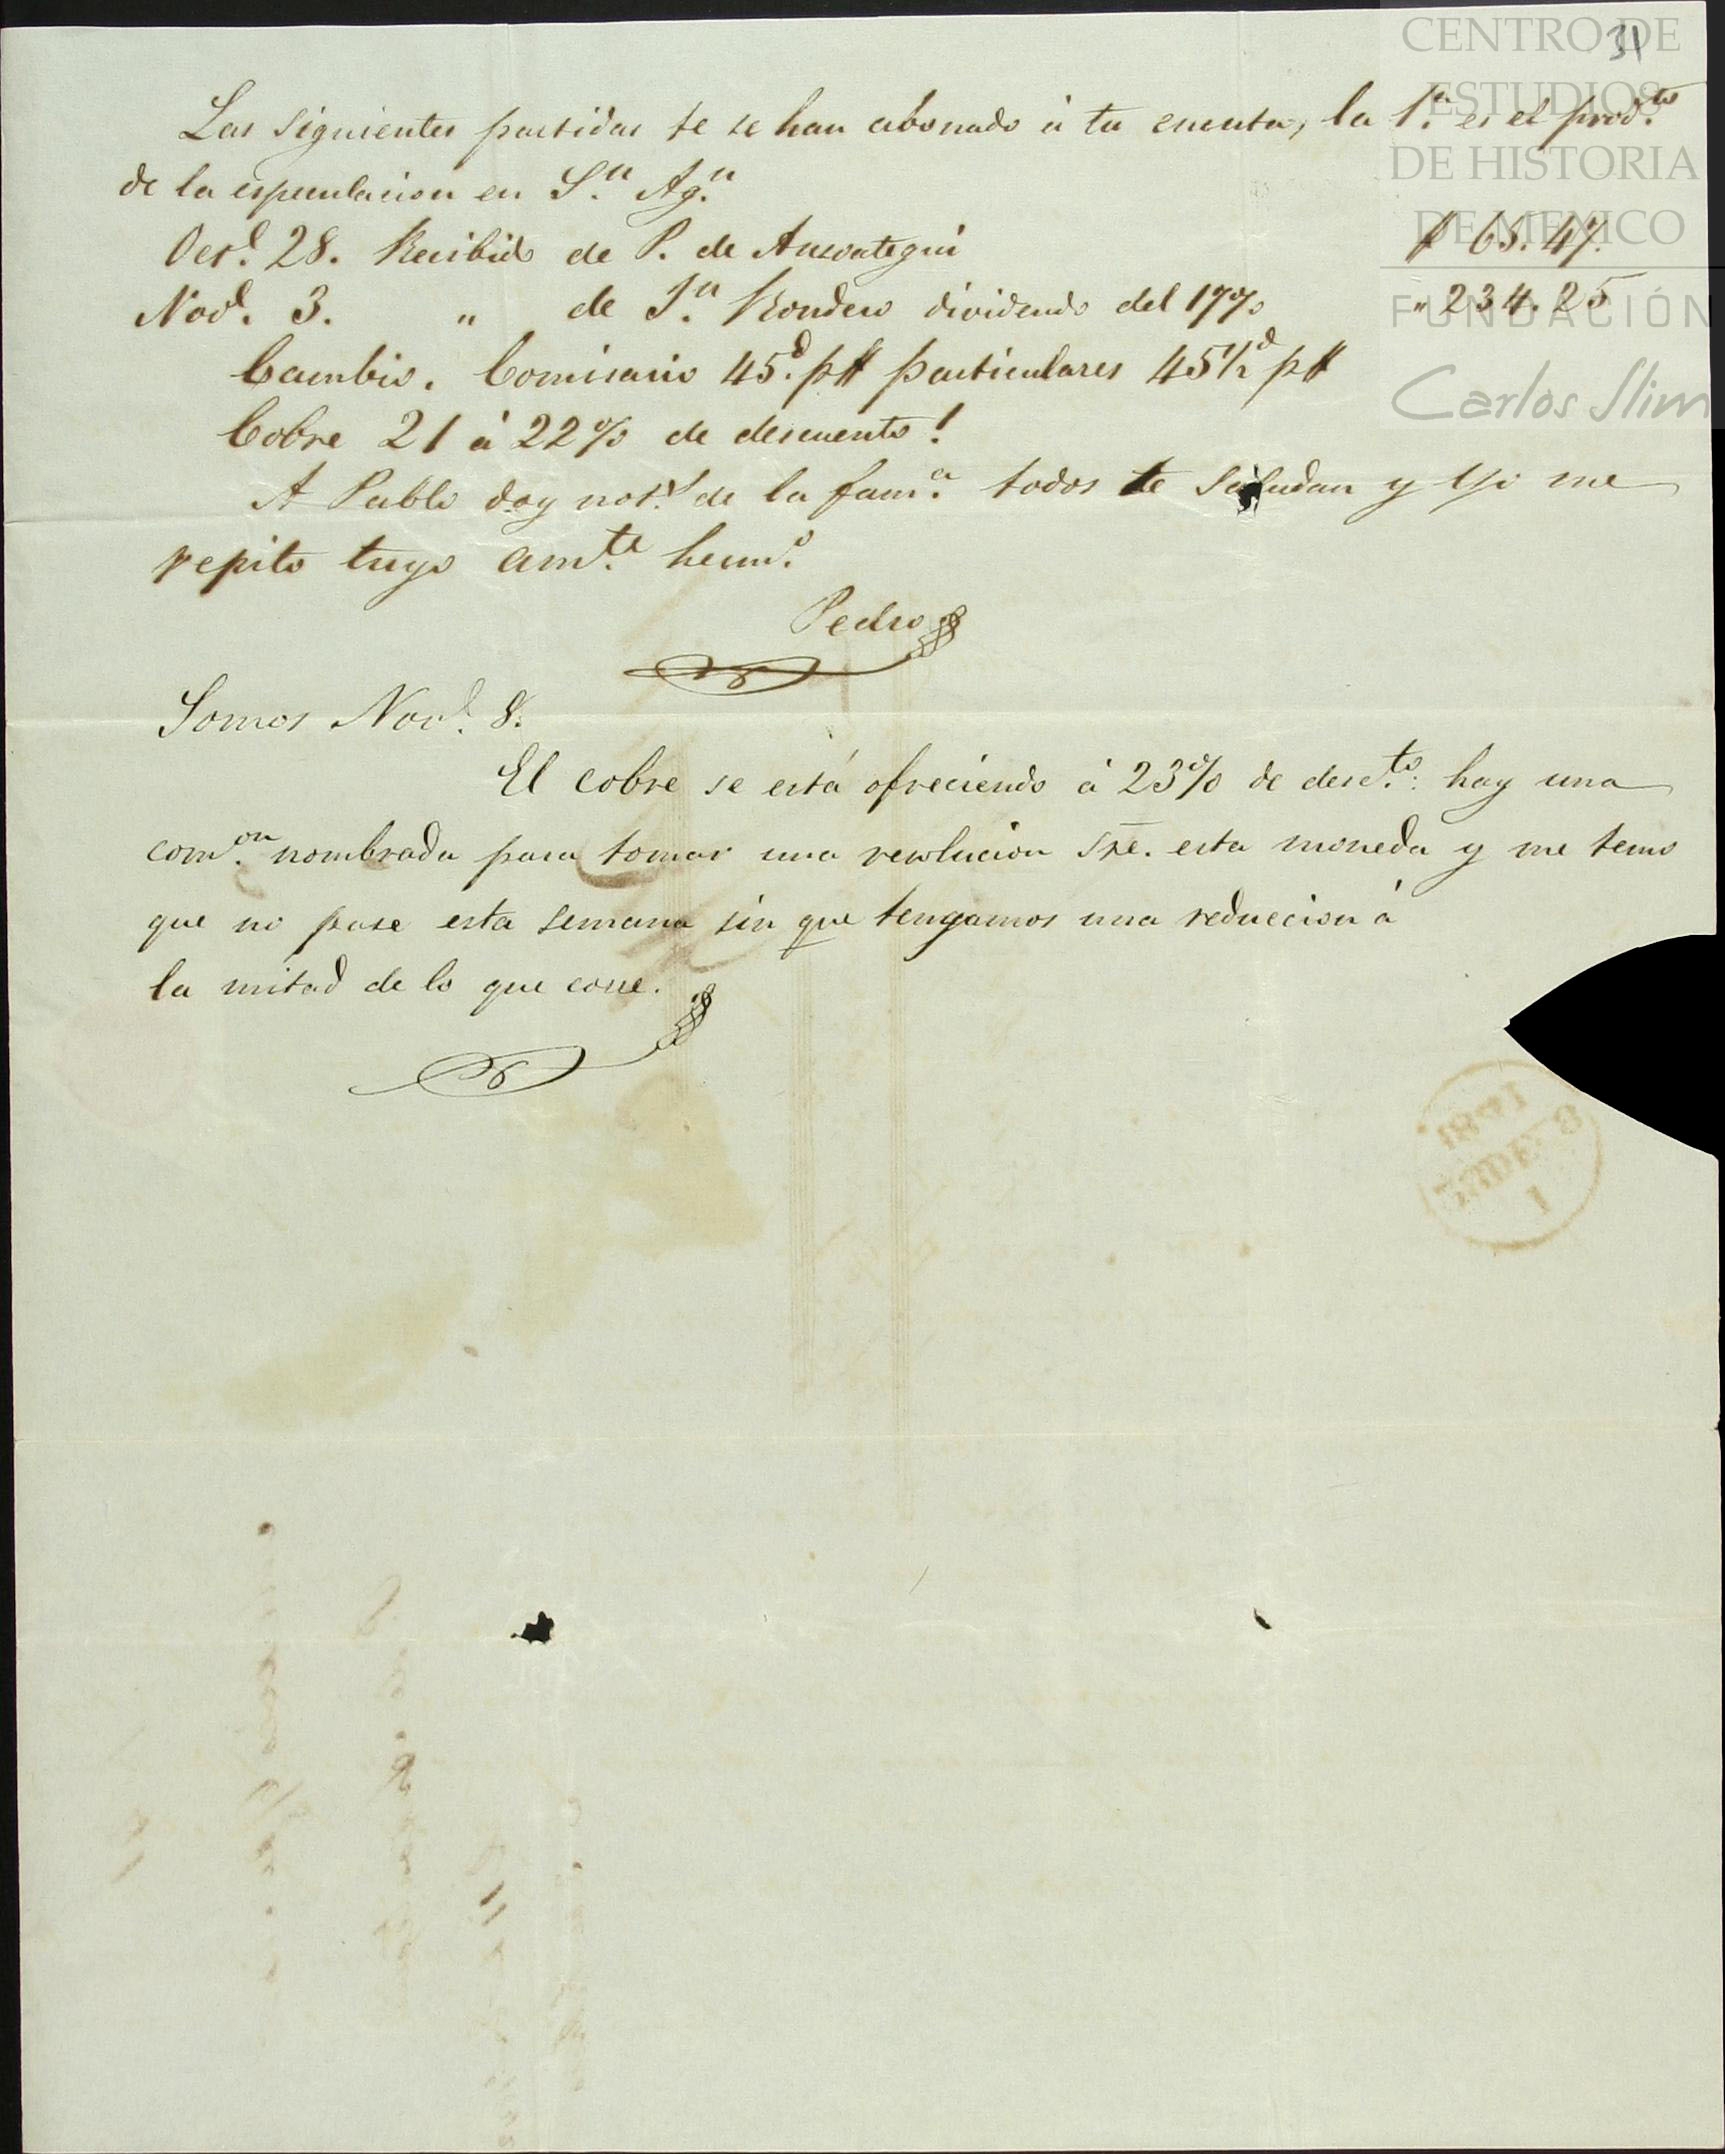 31
Las siguientes partidas te se han abonado à tu cuenta, la 1.ª es el prod.to
de la especulacion en S.n Ag.n
Oct.e 28. Recibido de P. de Ansoategui $ 65.47.
Nov.e 3. " de J.n Rondero dividendo del 17% " 234.25
Cambio. Comisario 45.d p$ particulares 45½d p$
Cobre 21 à 22% de descuento!
A Pablo doy not.s de la fam.a todos te saludan y yo me
repito tuyo am.te herm.o
Pedro
Somos Nov.e 8.
El cobre se está ofreciendo à 23% de desc.to: hay una
com.on nombrada para tomar una resolucion sre. esta moneda y me temo
que no pase esta semana sin que tengamos una reduccion à
la mitad de lo que corre.
CENTRO DE
ESTUDIOS
DE HISTORIA
DE MEXICO
FUNDACIÓN
Carlos Slim